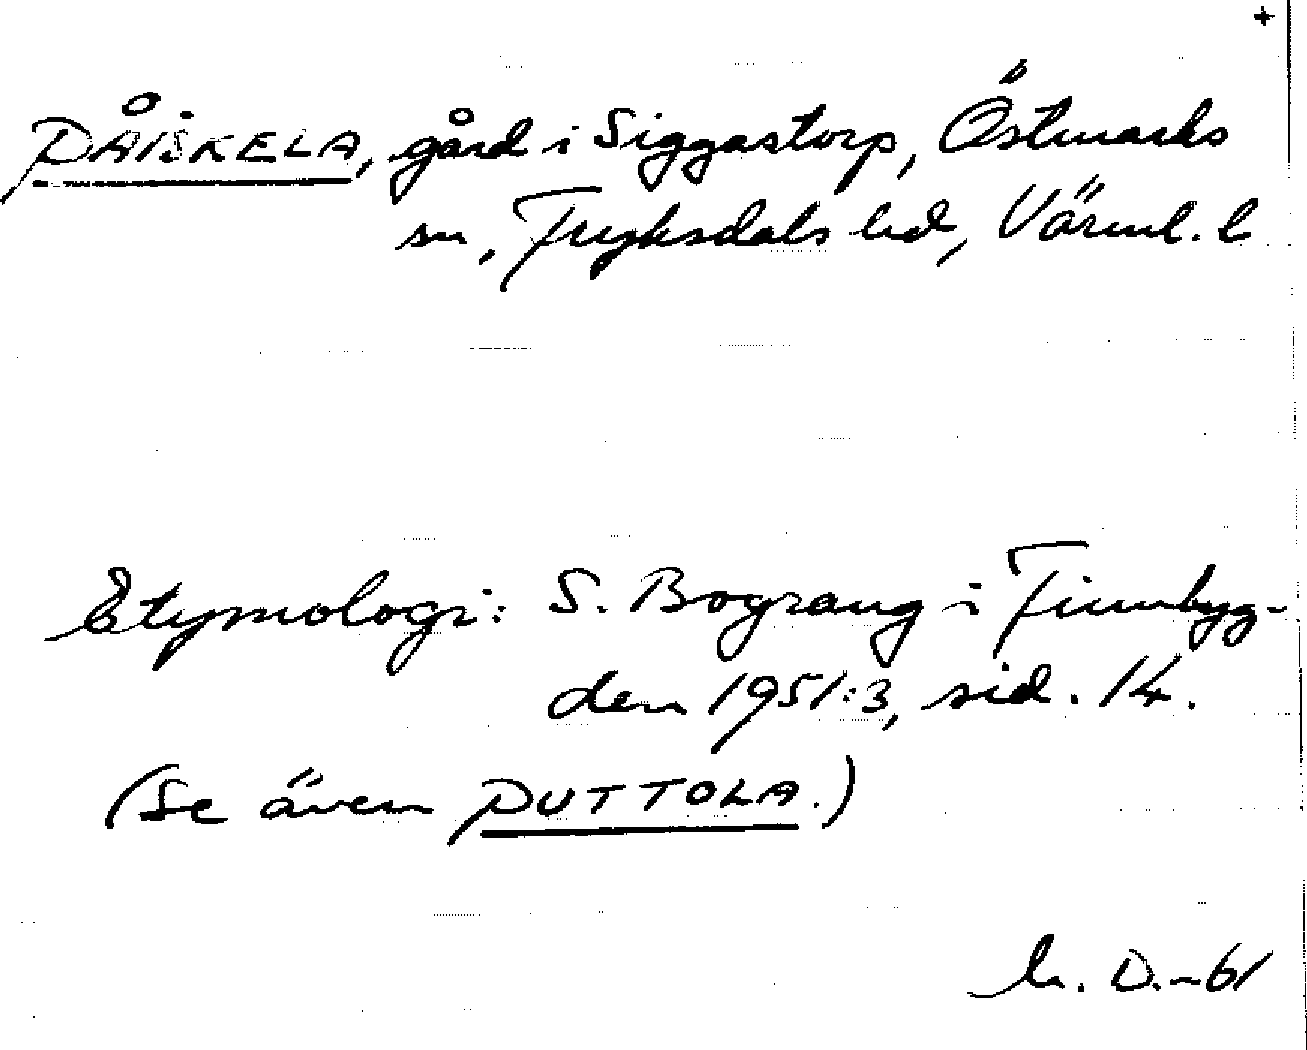 +
PÅISKELA, gård i Siggastorp, Östmarks
sn, Fryksdals hd, Värml. l
Etymologi: S. Bograng i Finnbyg-
den 1951:3, sid. 14.
(Se även PUTTOLA.)
D.-61